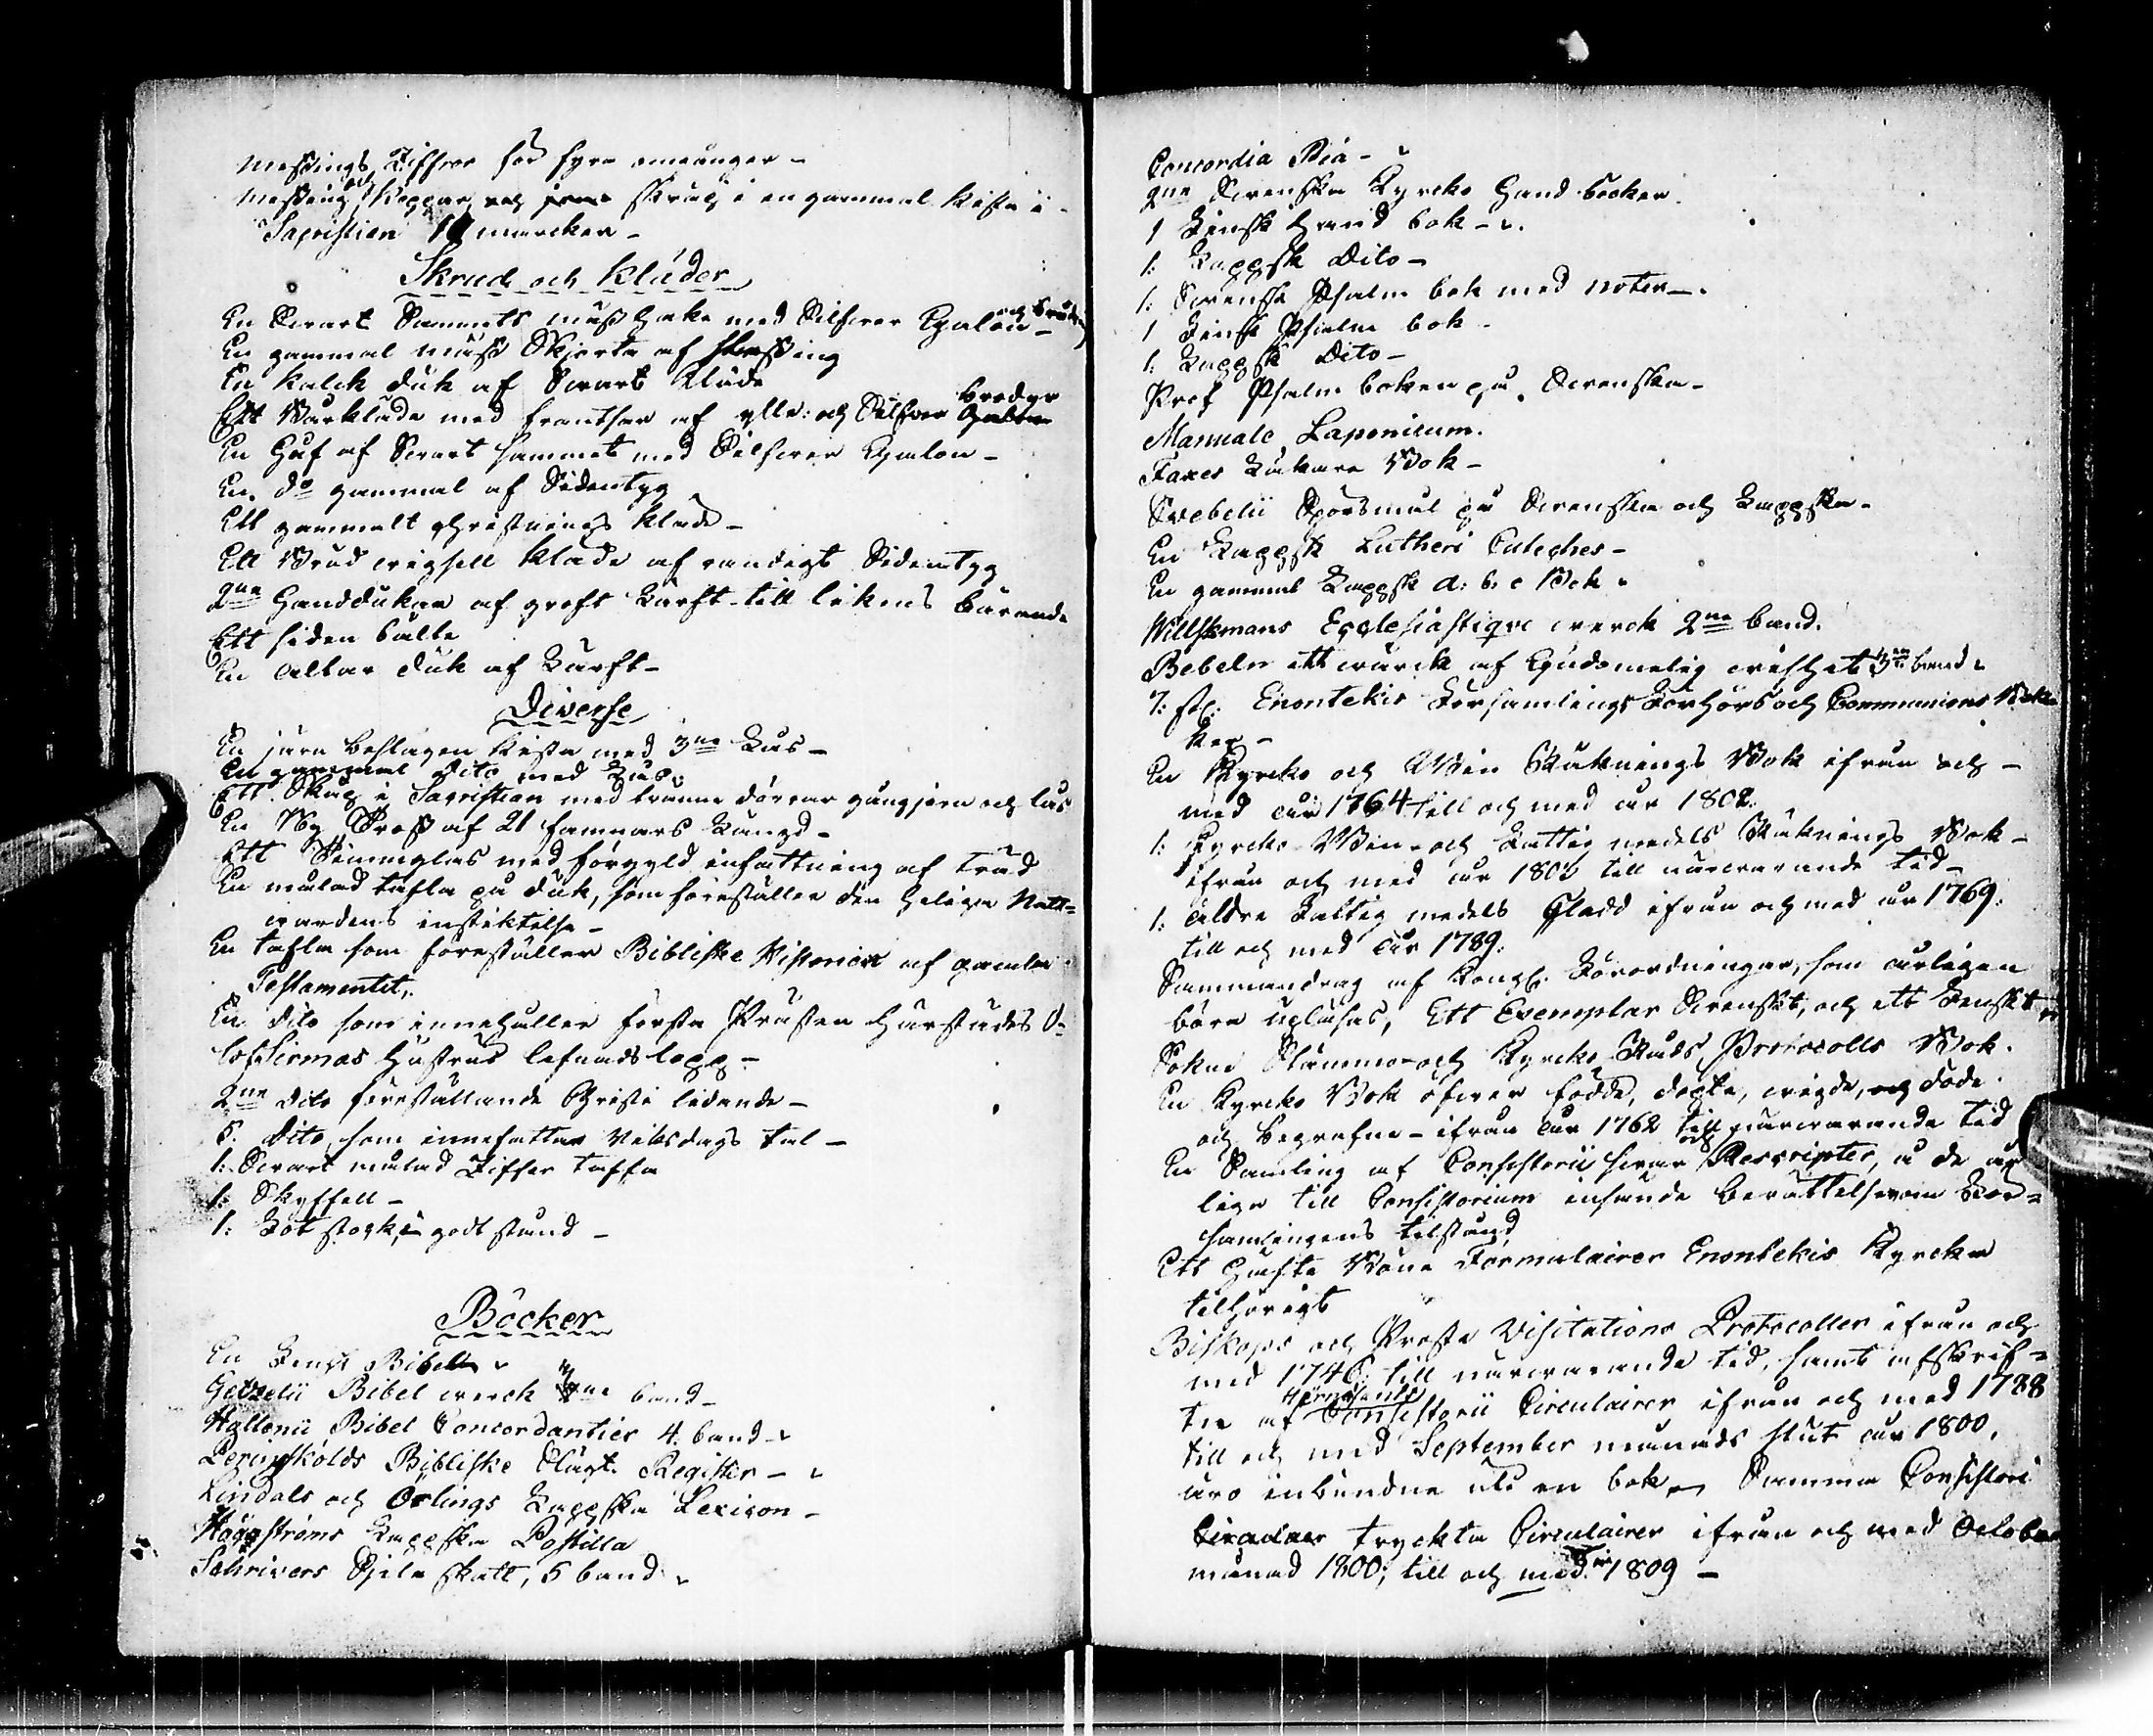 Messings Ziffror för fyra omgångar -
Messing Knappar och skrap i en gammal kista i
Sacristien 11 marcker -
Skrud och kläder
En Svart Sammets mäss hake med Silfver Galon - och brodering
En gammal mäss Skjorta af
En Kalck duk af Svart kläde
Ett Warkläde med frantsar af ylle: och Silfver brodyr
En Håf af Svart sammet med Silfver Galon -
En do gammal af Sidentyg
Ett gammalt christnings kläde -
Ett Brud wigsell kläde af randigt Sidentyg
2ne Handdukar af groft Lärft till likens bärande
Ett siden bälte
En altar duk af Lärft -
Diverse
En järn beslagen kista med 3ne Lås -
En gammal dito med Lås.
Ett Skåp i Sacristian med tvänne dörrar gångjern och lås
En Ny Tross af 21 famnars Längd -
Ett Timmglas med förgyld infattning af träd
En målad tafla på duk, som föreställer den heliga Natt=
wardens instiktelse -
En tafla som föreställer Bibliske Historien af gamla
Testamentet,
En dito som innehåller första Prästen Härstädes O=
lof Sirmas hustrus lefnads lopp -
2ne dito föreställande Christi lidande -
5. dito, som innefattar Wiksdags tal -
1: Svart målad Ziffer taffla
1: Skyffell -
1: Fot stock, i godt stånd -
Böcker
En Finsk Bibel
Getzelii Bibel werck band -
Hallenii Bibel Concordantier 4. band -
Peringskölds Bibliske Slägt. Register -
Lindals och Örlings Lappska Lexicon -
Höggströms Lappska Postilla
Schrivers Själa skatt, 5 band
Concordia Pia -
2ne Svenska Kyrcko Hand böcker.
1 Finsk Hand bok -
1: Lappsk Dito -
1: Svensk Psalm bok med noter -
1 Finsk Psalm bok -
1: Lappsk Dito -
Prof Psalm boken på Svenska -
Manuale Laponicum.
Faxes Läkare Bok -
Svebelii Spörsmål på Svenska och Lappska -
En Lappsk Lutheri Cateches -
En gammal Lappsk a: b. c Bok
Willskmans Ecclesiastique werck 2ne band.
Bebeln ett wärck af Gudomelig wishet 3ne band
7: st. Enontekis Församlings Förhörs och Communions Böc
ker -
En Kyrcko och Win Räknings Bok ifrån och -
med år 1764 till och med år 1802.
1: Kyrcko Win - och Fattig medels Räknings Bok -
ifrån och med år 1802 till närwarande tid -
1: äldre Fattig medels Kladd ifrån och med år 1769.
till och med år 1789.
Sammandrag af Kongl. Förordningar, som årligen
böra upläsas, Ett Exemplar Svenskt, och ett Finskt
Sokne Stämmo - och Kyrcko Råds Protocolls Bok.
En Kyrcko Bok öfver födde, döpte, wigde, och döde
och begrafne - ifrån år 1762 till närwarande tid
En Samling af Consistorii swar och Rescripter, å de år
liga till Consistorium insände berättelser om För=
samlingens tilstånd,
Ett Häfte Böne Formulairer Enontekis Kyrcka
tilhörigt
Biskops och Prosta Visitations Protocoller ifrån och
med 1746 till närwarande tid, samt afskrif=
ter af Hernösands Consistorii Circulairer ifrån och med 1788
till och med September månads slut år 1800.
äro inbundne uti en bok, Samma Consistorii
tryckta Circulairer ifrån och med October
månad 1800; till och med år 1809 -